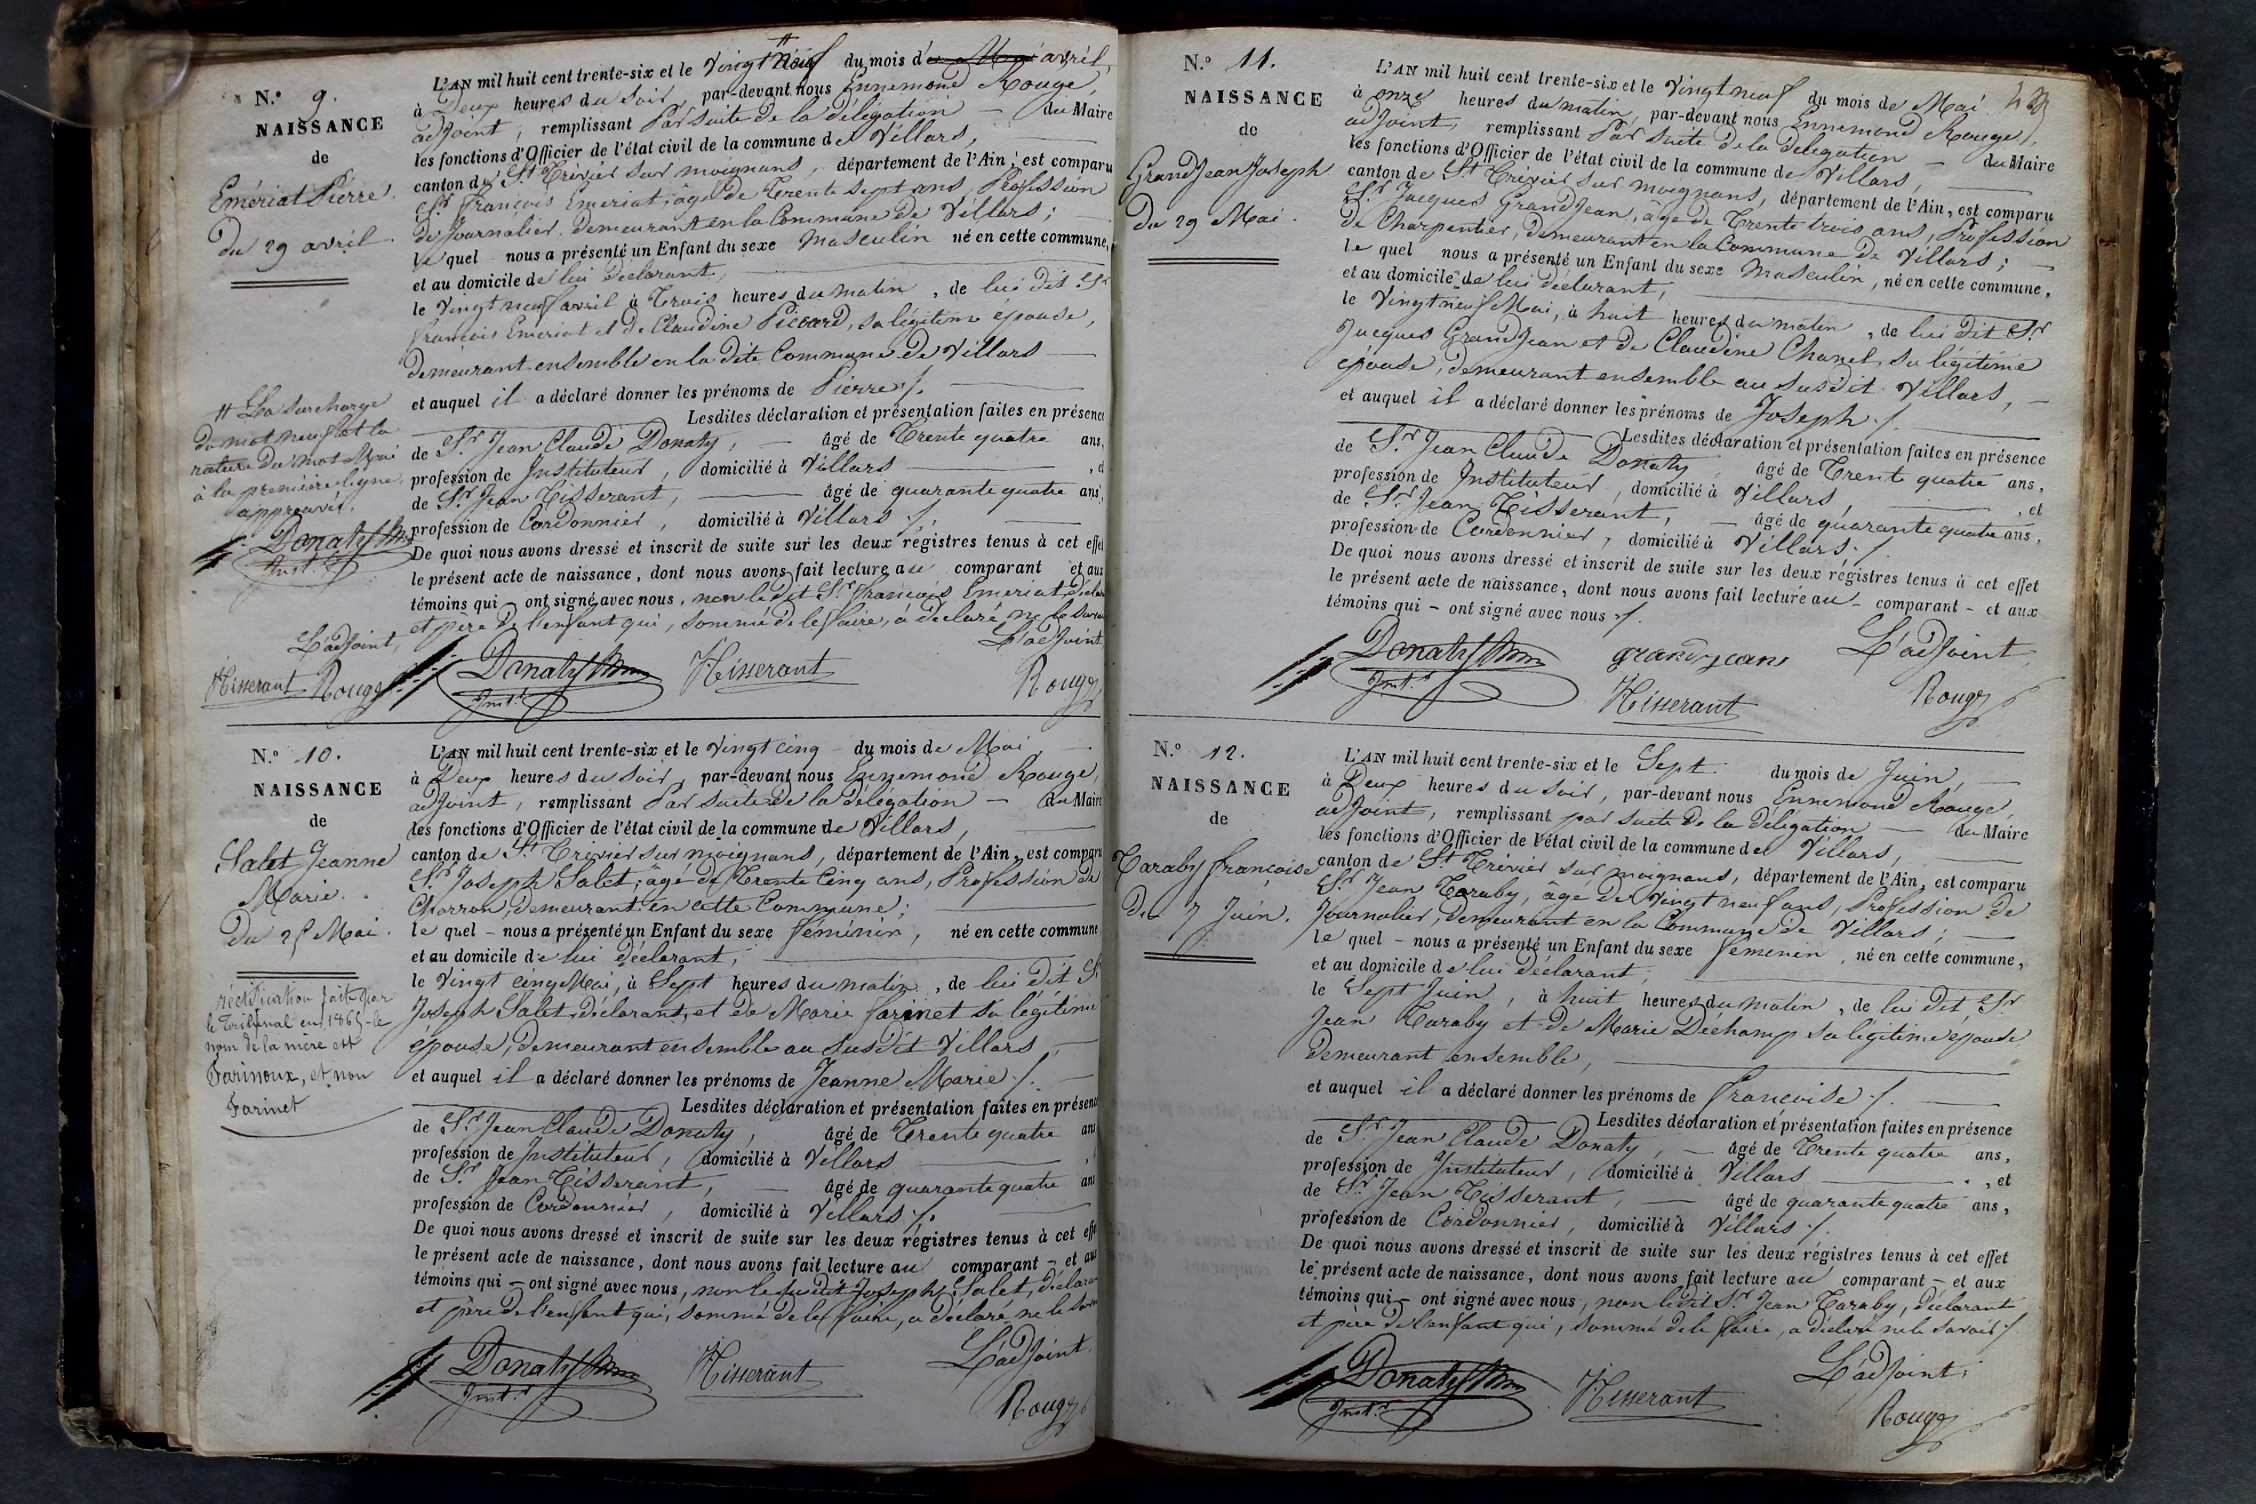 N.º 9.
NAISSANCE
de
Emériat Pierre.
Du 29 avril.
L'AN mil huit cent trente-six et le Vingt neuf du mois d'avril,
à Deux heures du Soir, par-devant nous Ennemond Rouge,
adjoint, remplissant Par Suite de la délégation — du Maire
les fonctions d'Officier de l'état civil de la commune de Villars,
canton de St Trivier sur moignans, département de l'Ain, est comparu
Sr. François Emeriat, âgé de Trente Sept ans, Profession
de Journalier, demeurant en la Commune de Villars;
le quel nous a présenté un Enfant du sexe Masculin né en cette commune,
et au domicile de lui déclarant,
le Vingt neuf avril à Trois heures du matin, de lui dit Sr
françois Emeriat et de Claudine Piccard, sa légitime épouse,
demeurant ensemble en la dite Commune de Villars —
et auquel il a déclaré donner les prénoms de Pierre ./.
Lesdites déclaration et présentation faites en présence
de Sr. Jean Claude Donaty, — âgé de Trente quatre ans,
profession de Instituteur, domicilié à Villars — , et
de Sr. Jean Tisserant, — âgé de quarante quatre ans,
profession de Cordonnier, domicilié à Villars ./.
De quoi nous avons dressé et inscrit de suite sur les deux régistres tenus à cet effet
le présent acte de naissance, dont nous avons fait lecture au comparant et aux
témoins qui ont signé avec nous, non le dit Sr. françois Emeriat, déclar
et père de l'enfant qui, sommé de le faire, a déclaré ne le savoir
L'adjoint
Donaty
Inst.r
Tisserant
Rouge
# La Surcharge
du mot neuf et la
rature du mot Mai
à la première ligne.
approuvés.
Donaty
Inst.r
L'adjoint,
Tisserant Rouge
N.º 10.
NAISSANCE
de
Salet Jeanne
Marie.
Du 25 Mai.
rectification faite par
le Tribunal en 1865 - le
nom de la mère est
Farinoux, et non
Farinet
L'AN mil huit cent trente-six et le Vingt cinq — du mois de Mai, —
à Deux heures du Soir, par-devant nous Ennemond Rouge,
adjoint, remplissant Par Suite de la délégation — du Maire
les fonctions d'Officier de l'état civil de la commune de Villars,
canton de St Trivier sur moignans, département de l'Ain, est comparu
Sr. Joseph Salet, âgé de Trente Cinq ans, Profession de
Charron, demeurant en cette Commune;
le quel — nous a présenté un Enfant du sexe féminin, né en cette commune
et au domicile de lui déclarant,
le Vingt cinq Mai, à Sept heures du matin, de lui dit Sr
Joseph Salet, déclarant, et de Marie farinet sa légitime
épouse, demeurant ensemble au Susdit Villars, —
et auquel il a déclaré donner les prénoms de Jeanne Marie ./. —
Lesdites déclaration et présentation faites en présence
de Sr. Jean Claude Donaty, âgé de Trente quatre ans
profession de Instituteur, domicilié à Villars —
de Sr. Jean Tisserant, — âgé de quarante quatre ans
profession de Cordonnier, domicilié à Villars ./.
De quoi nous avons dressé et inscrit de suite sur les deux régistres tenus à cet effe
le présent acte de naissance, dont nous avons fait lecture au comparant — et aux
témoins qui — ont signé avec nous, non le susdit Joseph Salet, déclaran
et père de l'enfant qui, sommé de le faire, a déclaré ne le savoir
L'adjoint.
Donaty
Inst.r
Tisserant
Rouge
N.º 11.
NAISSANCE
de
GrandJean Joseph
Du 29 Mai.
L'AN mil huit cent trente-six et le Vingt neuf du mois de Mai
à onze heures du matin, par-devant nous Ennemond Rouge,
adjoint, remplissant Par Suite de la délégation — du Maire
les fonctions d'Officier de l'état civil de la commune de Villars,
canton de St Trivier sur moignans, département de l'Ain, est comparu
Sr. Jacques GrandJean, âgé de Trente trois ans, Profession
de Charpentier, demeurant en la Commune de Villars;
le quel nous a présenté un Enfant du sexe Masculin, né en cette commune,
et au domicile de lui déclarant,
le Vingt neuf Mai, à huit heures du matin, de lui dit Sr.
Jacques GrandJean et de Claudine Chanel, sa légitime
épouse, demeurant ensemble au Susdit Villars, —
et auquel il a déclaré donner les prénoms de Joseph ./.
Lesdites déclaration et présentation faites en présence
de Sr. Jean Claude Donaty âgé de Trente quatre ans,
profession de Instituteur, domicilié à Villars, — , et
de Sr. Jean Tisserant, — âgé de quarante quatre ans,
profession de Cordonnier, domicilié à Villars ./.
De quoi nous avons dressé et inscrit de suite sur les deux régistres tenus à cet effet
le présent acte de naissance, dont nous avons fait lecture au — comparant — et aux
témoins qui — ont signé avec nous ./.
Donaty
Inst.r
grandjean
L'adjoint,
Tisserant
Rouge
N.º 12.
NAISSANCE
de
Taraby françoise
Du 7 Juin.
L'AN mil huit cent trente-six et le Sept du mois de Juin, —
à Deux heures du Soir, par-devant nous Ennemond Rouge,
adjoint, remplissant par Suite de la délégation — du Maire
les fonctions d'Officier de l'état civil de la commune de Villars,
canton de St Trivier sur moignans, département de l'Ain, est comparu
Sr. Jean Taraby, âgé de Vingt neuf ans, Profession de
Journalier, demeurant en la Commune de Villars; —
le quel — nous a présenté un Enfant du sexe femenin, né en cette commune,
et au domicile de lui déclarant,
le Sept Juin, à huit heures du matin, de lui dit Sr
Jean Taraby et de Marie Déchamp sa légitime épouse
demeurant ensemble,
et auquel il a déclaré donner les prénoms de françoise ./.
Lesdites déclaration et présentation faites en présence
de Sr. Jean Claude Donaty, — âgé de Trente quatre ans,
profession de Instituteur, domicilié à Villars — , et
de Sr. Jean Tisserant, — âgé de quarante quatre ans,
profession de Cordonnier, domicilié à Villars ./.
De quoi nous avons dressé et inscrit de suite sur les deux régistres tenus à cet effet
le présent acte de naissance, dont nous avons fait lecture au comparant — et aux
témoins qui — ont signé avec nous, non ledit Sr. Jean Taraby, déclarant
et père de l'enfant qui, sommé de le faire, a déclaré ne le savoir ./.
L'adjoint,
Donaty
Inst.r
Tisserant
Rouge